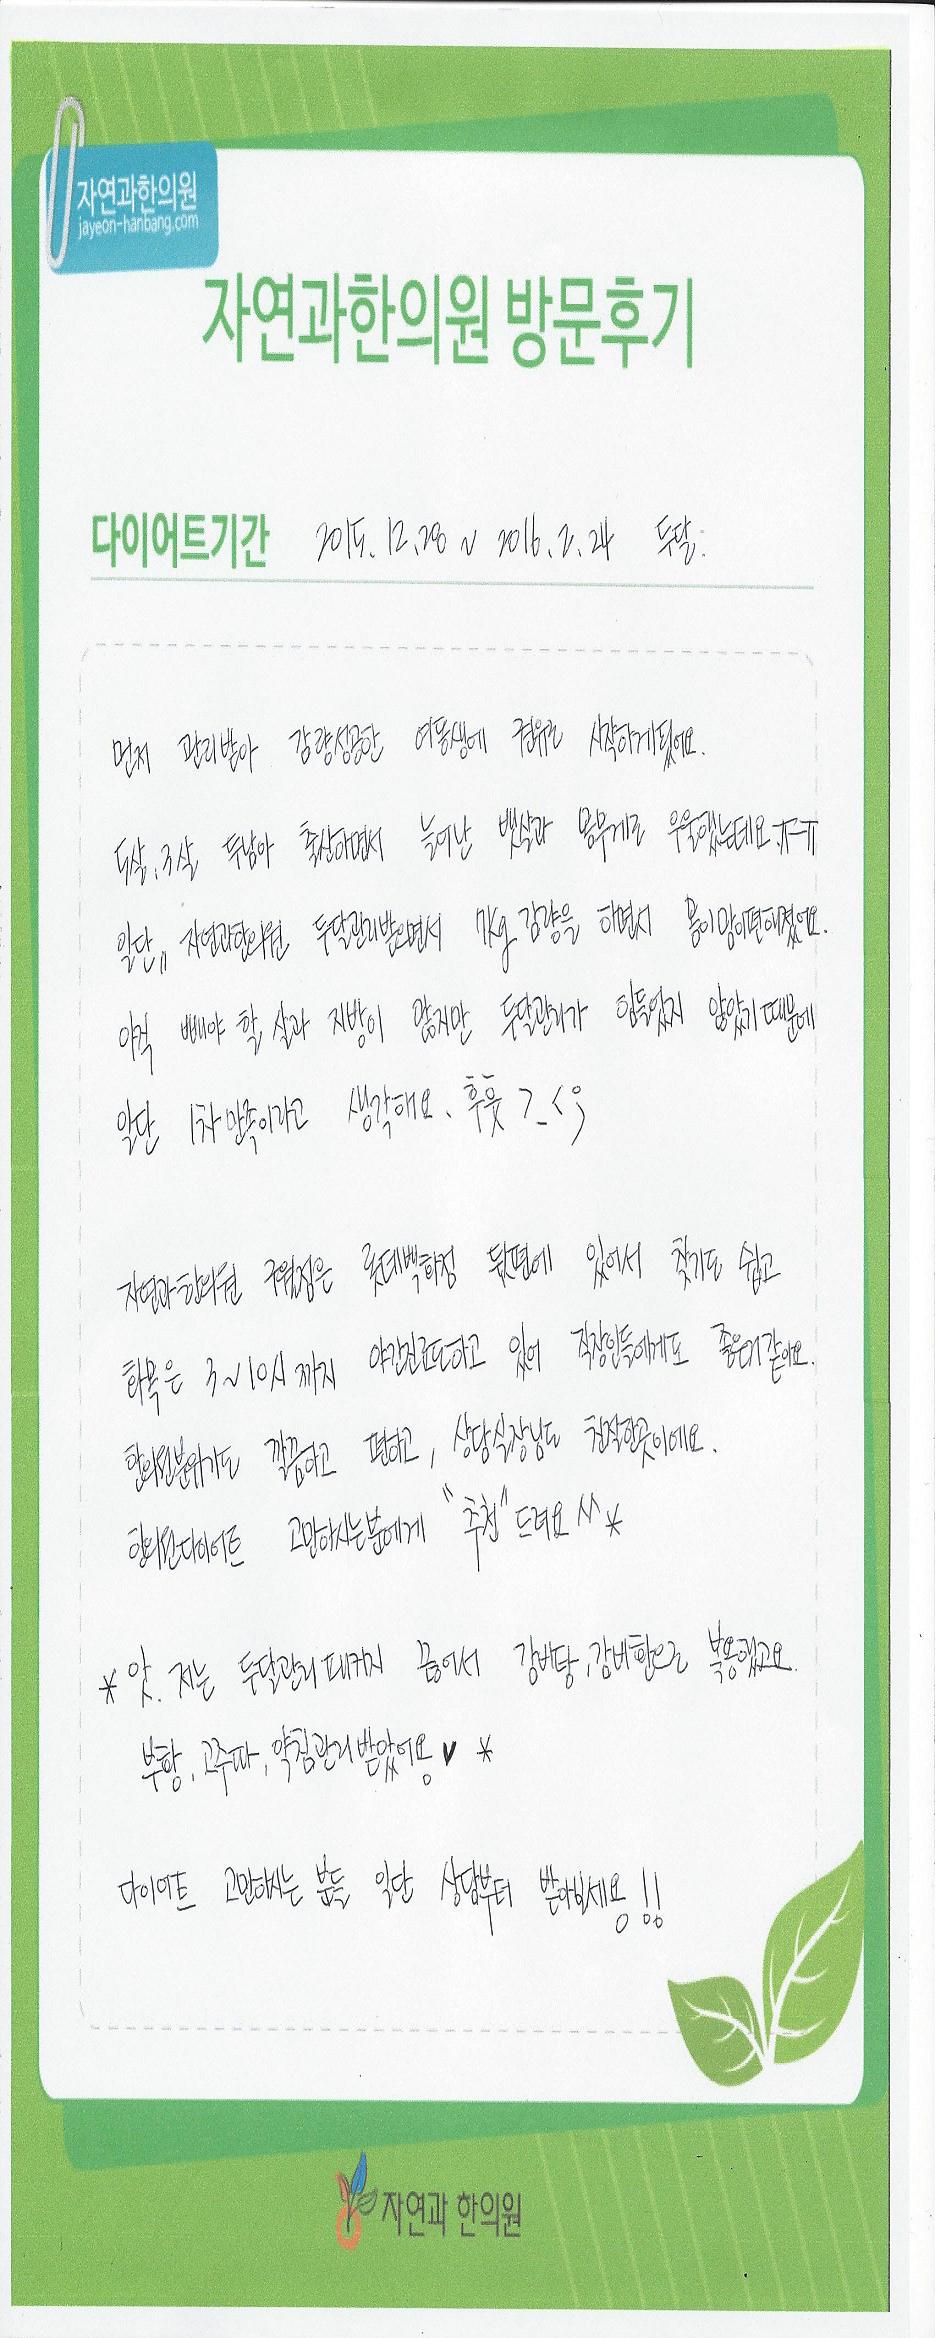 자연과한의원
jayeon-hanbang.com
자연과한의원 방문후기
다이어트기간 2015. 12. 28 ~ 2016. 2. 24 두달.
먼저 관리받아 감량성공한 여동생에 권유로 시작하게됬어요.
5살, 3살 두남아 출산하면서 늘어난 뱃살과 몸무게로 우울했는데요.ㅠㅜㅠ
일단,, 자연과한의원 두달관리받으면서 7kg 감량을 하면서 몸이많이편해졌어요.
아직 빼야 할 살과 지방이 많지만 두달관리가 힘들었지 않았기때문에
일단 1차만족이라고 생각해요. 후훗 >_<;
자연과한의원 구월점은 롯데백화점 뒷편에 있어서 찾기도 쉽고
화목은 3~10시까지 야간진료도하고 있어 직장인들에게도 좋은거같아요.
한의원분위기도 깔끔하고 편하고, 상담실장님도 친절한곳이에요.
한의원다이어트 고민하시는분에게 "추천" 드려요^^*
* 앗. 저는 두달관리 패키지 끊어서 감비탕, 감비환으로 복용했고요.
부항, 고주파, 약침관리받았어용♥ *
다이어트 고민하시는 분들 일단 상담부터 받아보세용!!
자연과 한의원